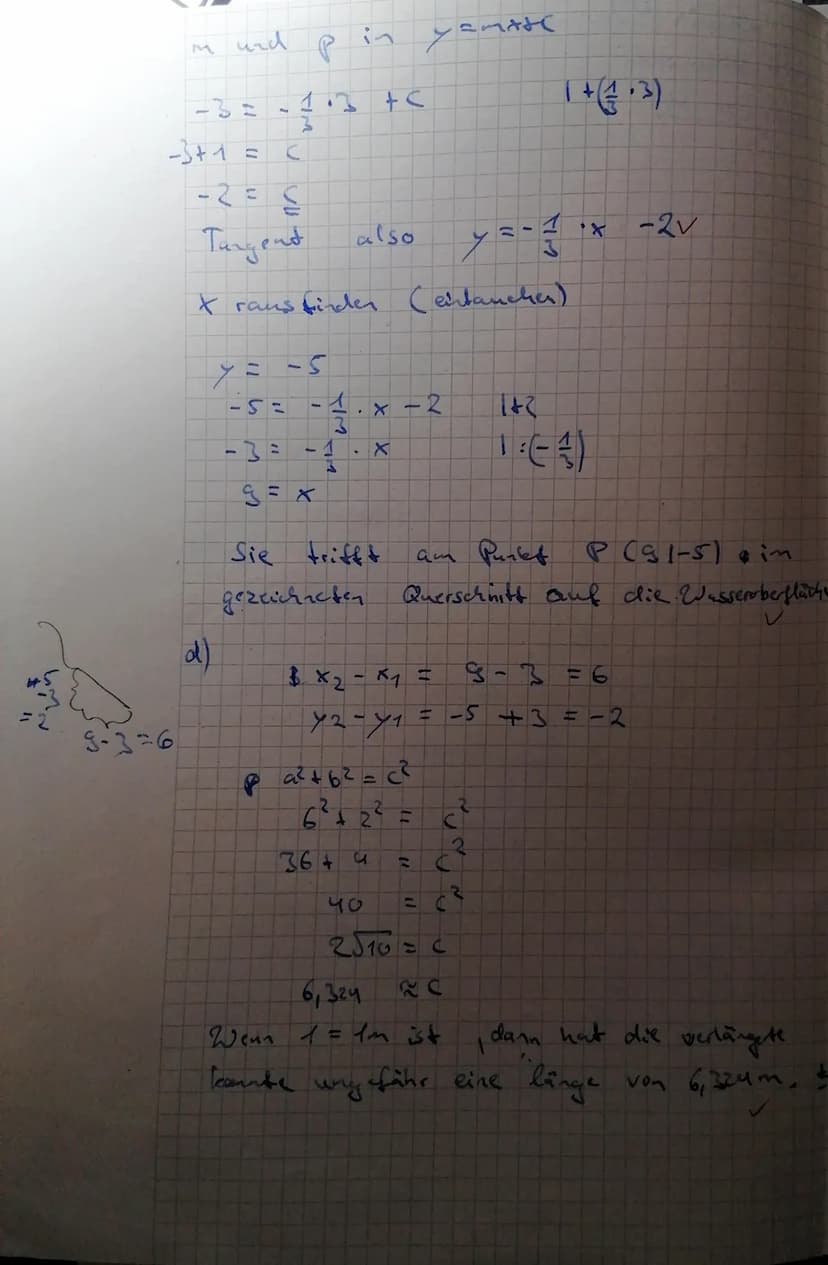 m und p in y=mx+c
-3 = -1/3 · 3 + c |+(1/3 · 3)
-3+1 = c
-2 = c
Tangent also y = -1/3 · x -2 ✓
x rausfinden (eintauchen)
y = -5
-5 = -1/3 · x - 2 |+2
-3 = -1/3 · x |:(-1/3)
9 = x
Sie trifft am Punkt P (9|-5) im
gezeichneten Querschnitt auf die Wasseroberfläche
✓
d) x₂ - x₁ = 9 - 3 = 6
y₂ - y₁ = -5 + 3 = -2
+5
-3
= 2
9-3=6
a² + b² = c²
6² + 2² = c²
36 + 4 = c²
40 = c²
2√10 = c
6,324 ≈ c
Wenn 1 = 1m ist, dann hat die verlängte
kannte ungefähr eine länge von 6,324m.
✓